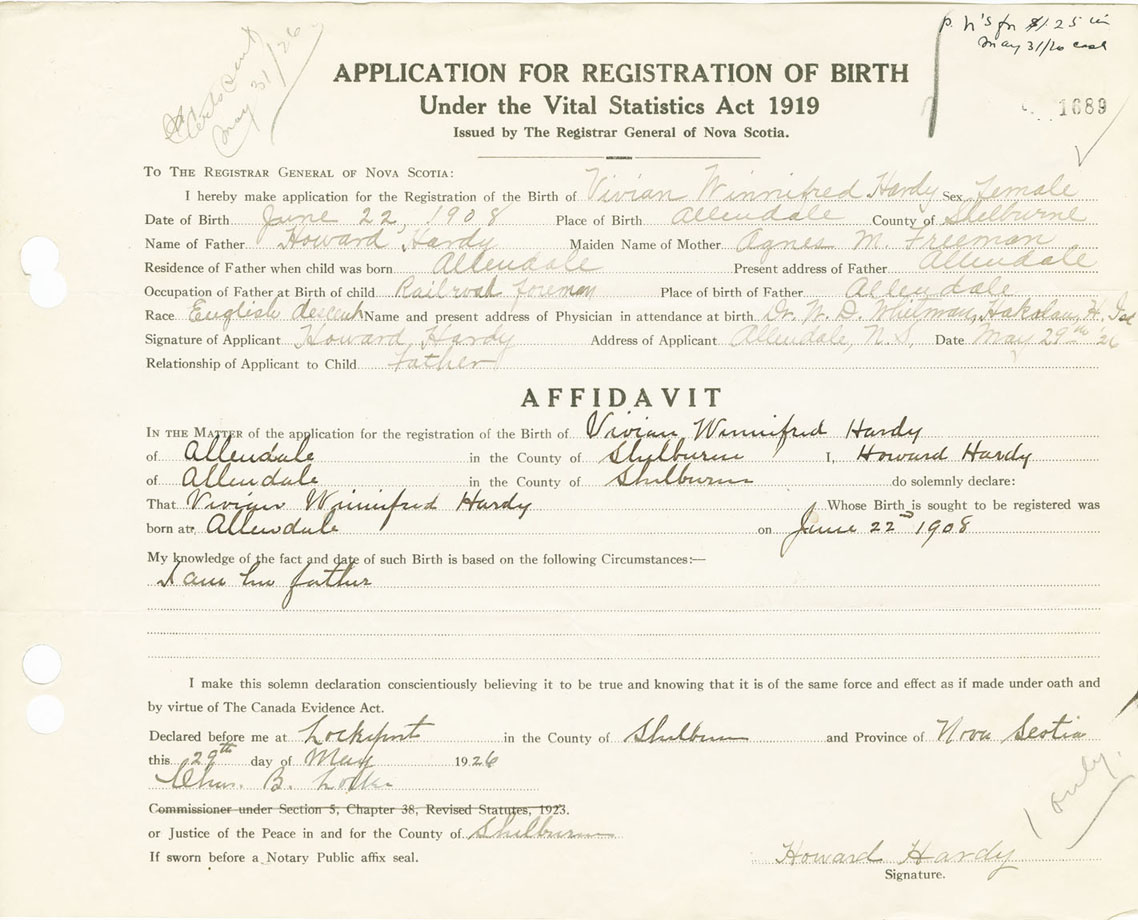 P. N's for $1.25 in
May 31/26 cash
Certs Sent
May 31/26
APPLICATION FOR REGISTRATION OF BIRTH
Under the Vital Statistics Act 1919
1689
Issued by The Registrar General of Nova Scotia.
TO THE REGISTRAR GENERAL OF NOVA SCOTIA:
I hereby make application for the Registration of the Birth of Vivian Winnifred Hardy Sex Female
Date of Birth June 22, 1908 Place of Birth Allendale County of Shelburne
Name of Father Howard Hardy Maiden Name of Mother Agnes M. Freeman
Residence of Father when child was born Allendale Present address of Father Allendale
Occupation of Father at Birth of child Railroad foreman Place of birth of Father Allendale
Race English descent Name and present address of Physician in attendance at birth Dr. W. D. Whitman, Hakalau, H. Isl
Signature of Applicant Howard Hardy Address of Applicant Allendale, N.S. Date May 29th '26
Relationship of Applicant to Child Father
AFFIDAVIT
IN THE MATTER of the application for the registration of the Birth of Vivian Winnifred Hardy
of Allendale in the County of Shelburne I, Howard Hardy
of Allendale in the County of Shelburne do solemnly declare:
That Vivian Winnifred Hardy Whose Birth is sought to be registered was
born at Allendale on June 22nd 1908
My knowledge of the fact and date of such Birth is based on the following Circumstances:—
I am her father
I make this solemn declaration conscientiously believing it to be true and knowing that it is of the same force and effect as if made under oath and
by virtue of The Canada Evidence Act.
Declared before me at Lockeport in the County of Shelburne and Province of Nova Scotia
this 29th day of May 1926
Chas. B. Locke
Commissioner under Section 5, Chapter 38, Revised Statutes, 1923.
or Justice of the Peace in and for the County of Shelburne
If sworn before a Notary Public affix seal.
1 only.
Howard Hardy
Signature.